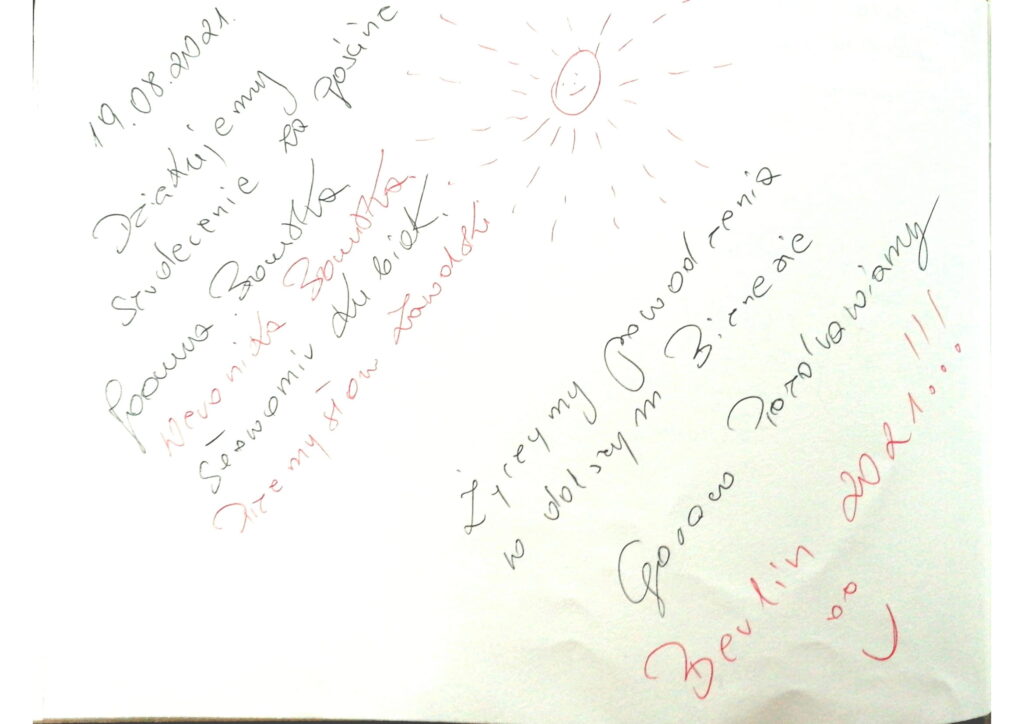 19.08.2021.
Dziękujemy
Serdecznie za
Joanna
Weronika
Sławomir Kubiak.
Przemysław Zawadzki
Życzymy powodzenia
w dalszym Biznesie
Gorąco Pozdrawiamy
Berlin 2021...!!!